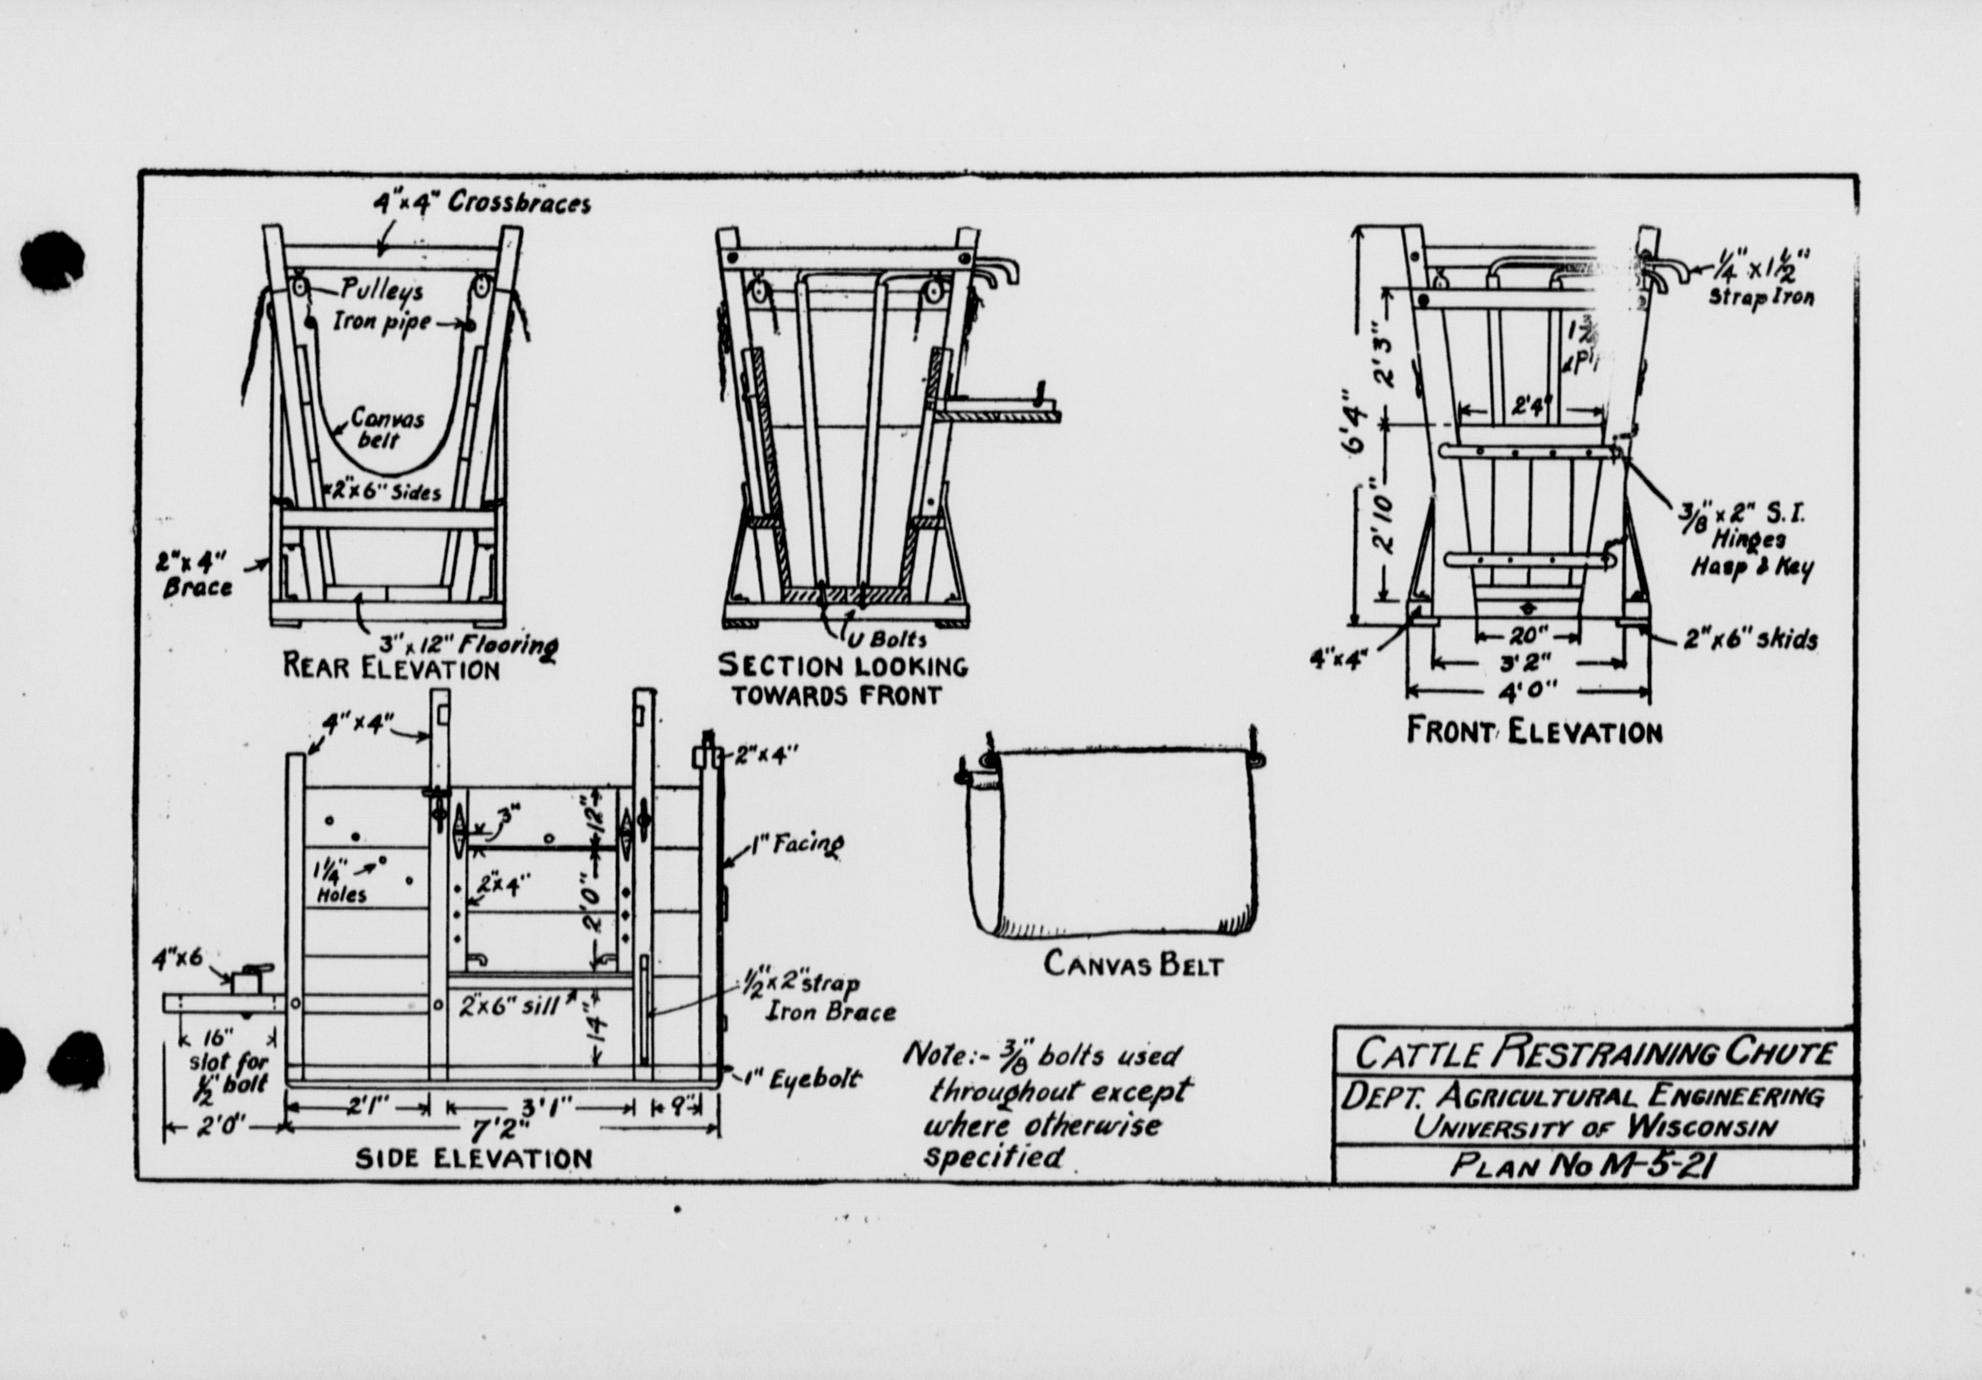 4"x4" Crossbraces
Pulleys
Iron pipe
Canvas
belt
2"x6" Sides
2"x4"
Brace
3"x12" Flooring
REAR ELEVATION
U Bolts
SECTION LOOKING
TOWARDS FRONT
1/4" x 1 1/2"
Strap Iron
2'3"
6'4"
2'4"
2'10"
3/8" x 2" S.I.
Hinges
Hasp & Key
4"x4"
20"
2"x6" skids
3'2"
4'0"
FRONT ELEVATION
4"x4"
2"x4"
3"
12"
1" Facing
1 1/4"
Holes
2"x4"
2'0"
4"x6
1/2" x 2" strap
Iron Brace
2"x6" sill
14"
16"
slot for
1/2" bolt
1" Eyebolt
2'1"
3'1"
9"
2'0"
7'2"
SIDE ELEVATION
CANVAS BELT
Note:- 3/8" bolts used
throughout except
where otherwise
specified
CATTLE RESTRAINING CHUTE
DEPT. AGRICULTURAL ENGINEERING
UNIVERSITY OF WISCONSIN
PLAN NO M-5-21